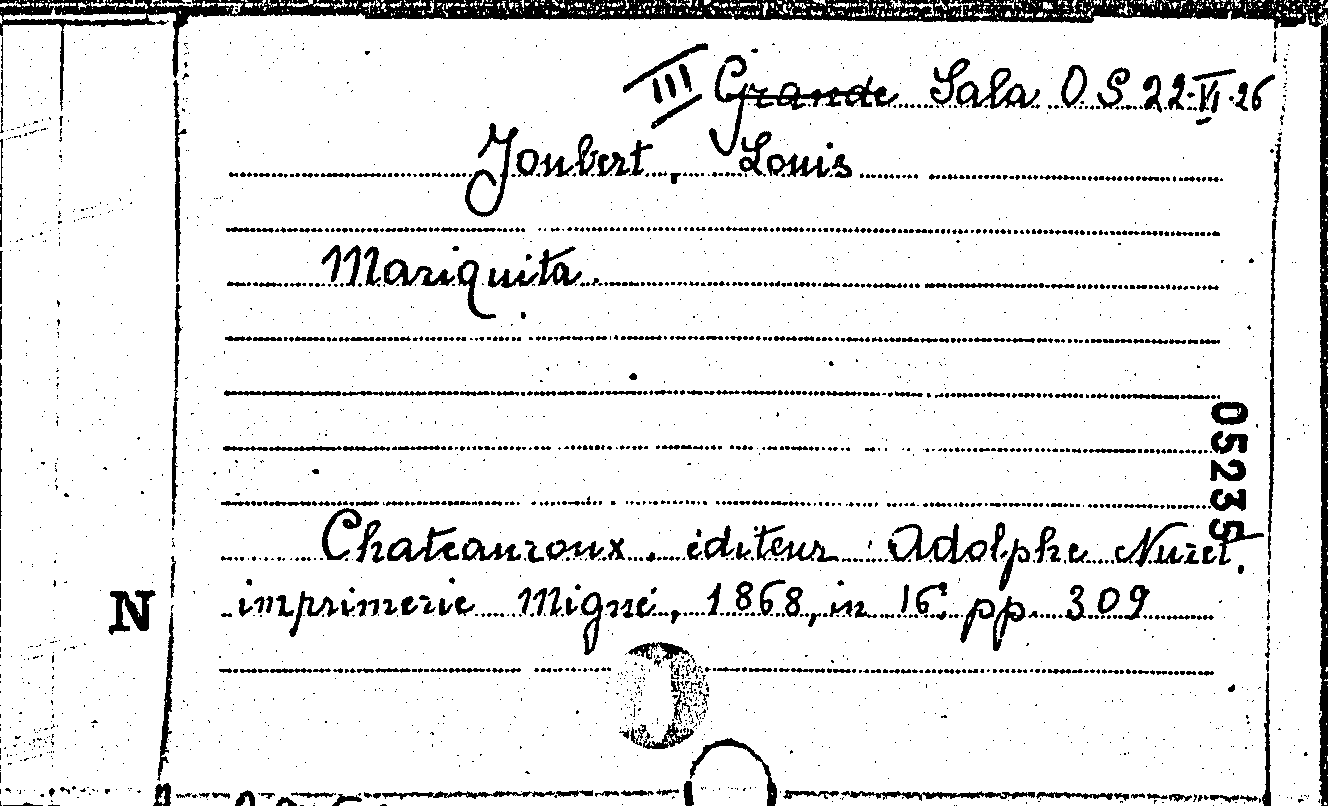 III Grande Sala O S 22-VI-26
Joubert, Louis
Mariquita.
05235
Chateauroux. éditeur Adolphe Nuret.
N
imprimerie Migné, 1868, in 16° pp. 309